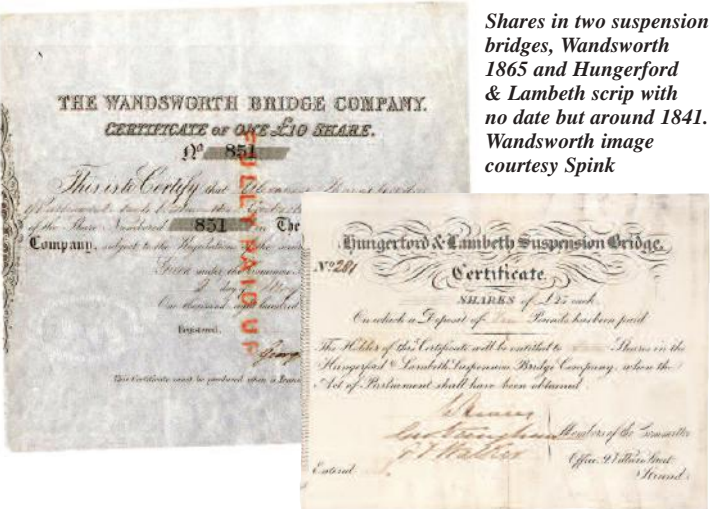 Shares in two suspension
bridges, Wandsworth
1865 and Hungerford
& Lambeth scrip with
no date but around 1841.
Wandsworth image
courtesy Spink
THE WANDSWORTH BRIDGE COMPANY.
CERTIFICATE OF ONE £10 SHARE.
No 851
This is to Certify that
of the Share Numbered 851 in The
Company, subject to the Regulations of the
Given under the Common
day
One thousand eight hundred
Registered,
This Certificate must be produced upon a
FULLY PAID UP
Hungerford & Lambeth Suspension Bridge.
No 281
Certificate.
SHARES of £25 each
On which a Deposit of Pounds has been paid
The Holder of this Certificate will be entitled to Shares in the
Hungerford & Lambeth Suspension Bridge Company, when the
Act of Parliament shall have been obtained
Members of the Committee
Office, Villiers Street
Strand.
Entered